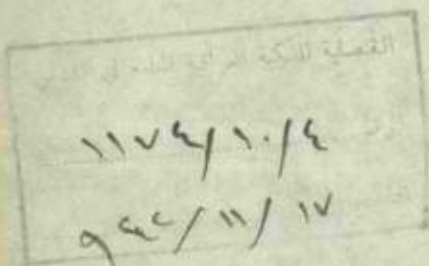 القنصلية الملكية العراقية العامة في القدس
١١٧٤/١٠/٤
٩٤٢/١١/١٧